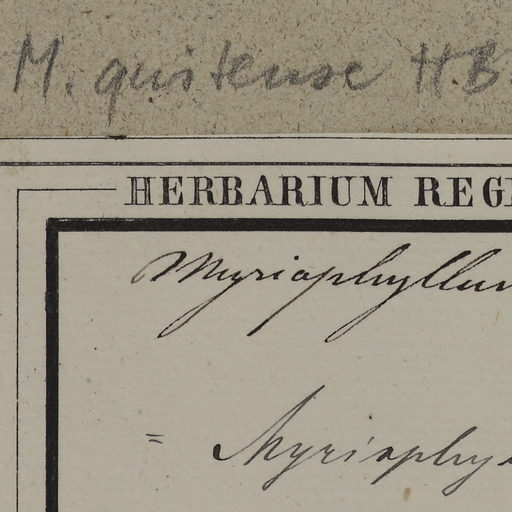 M. quitense H.B.
HERBARIUM REGI
Myriophyllum
= Myriophy